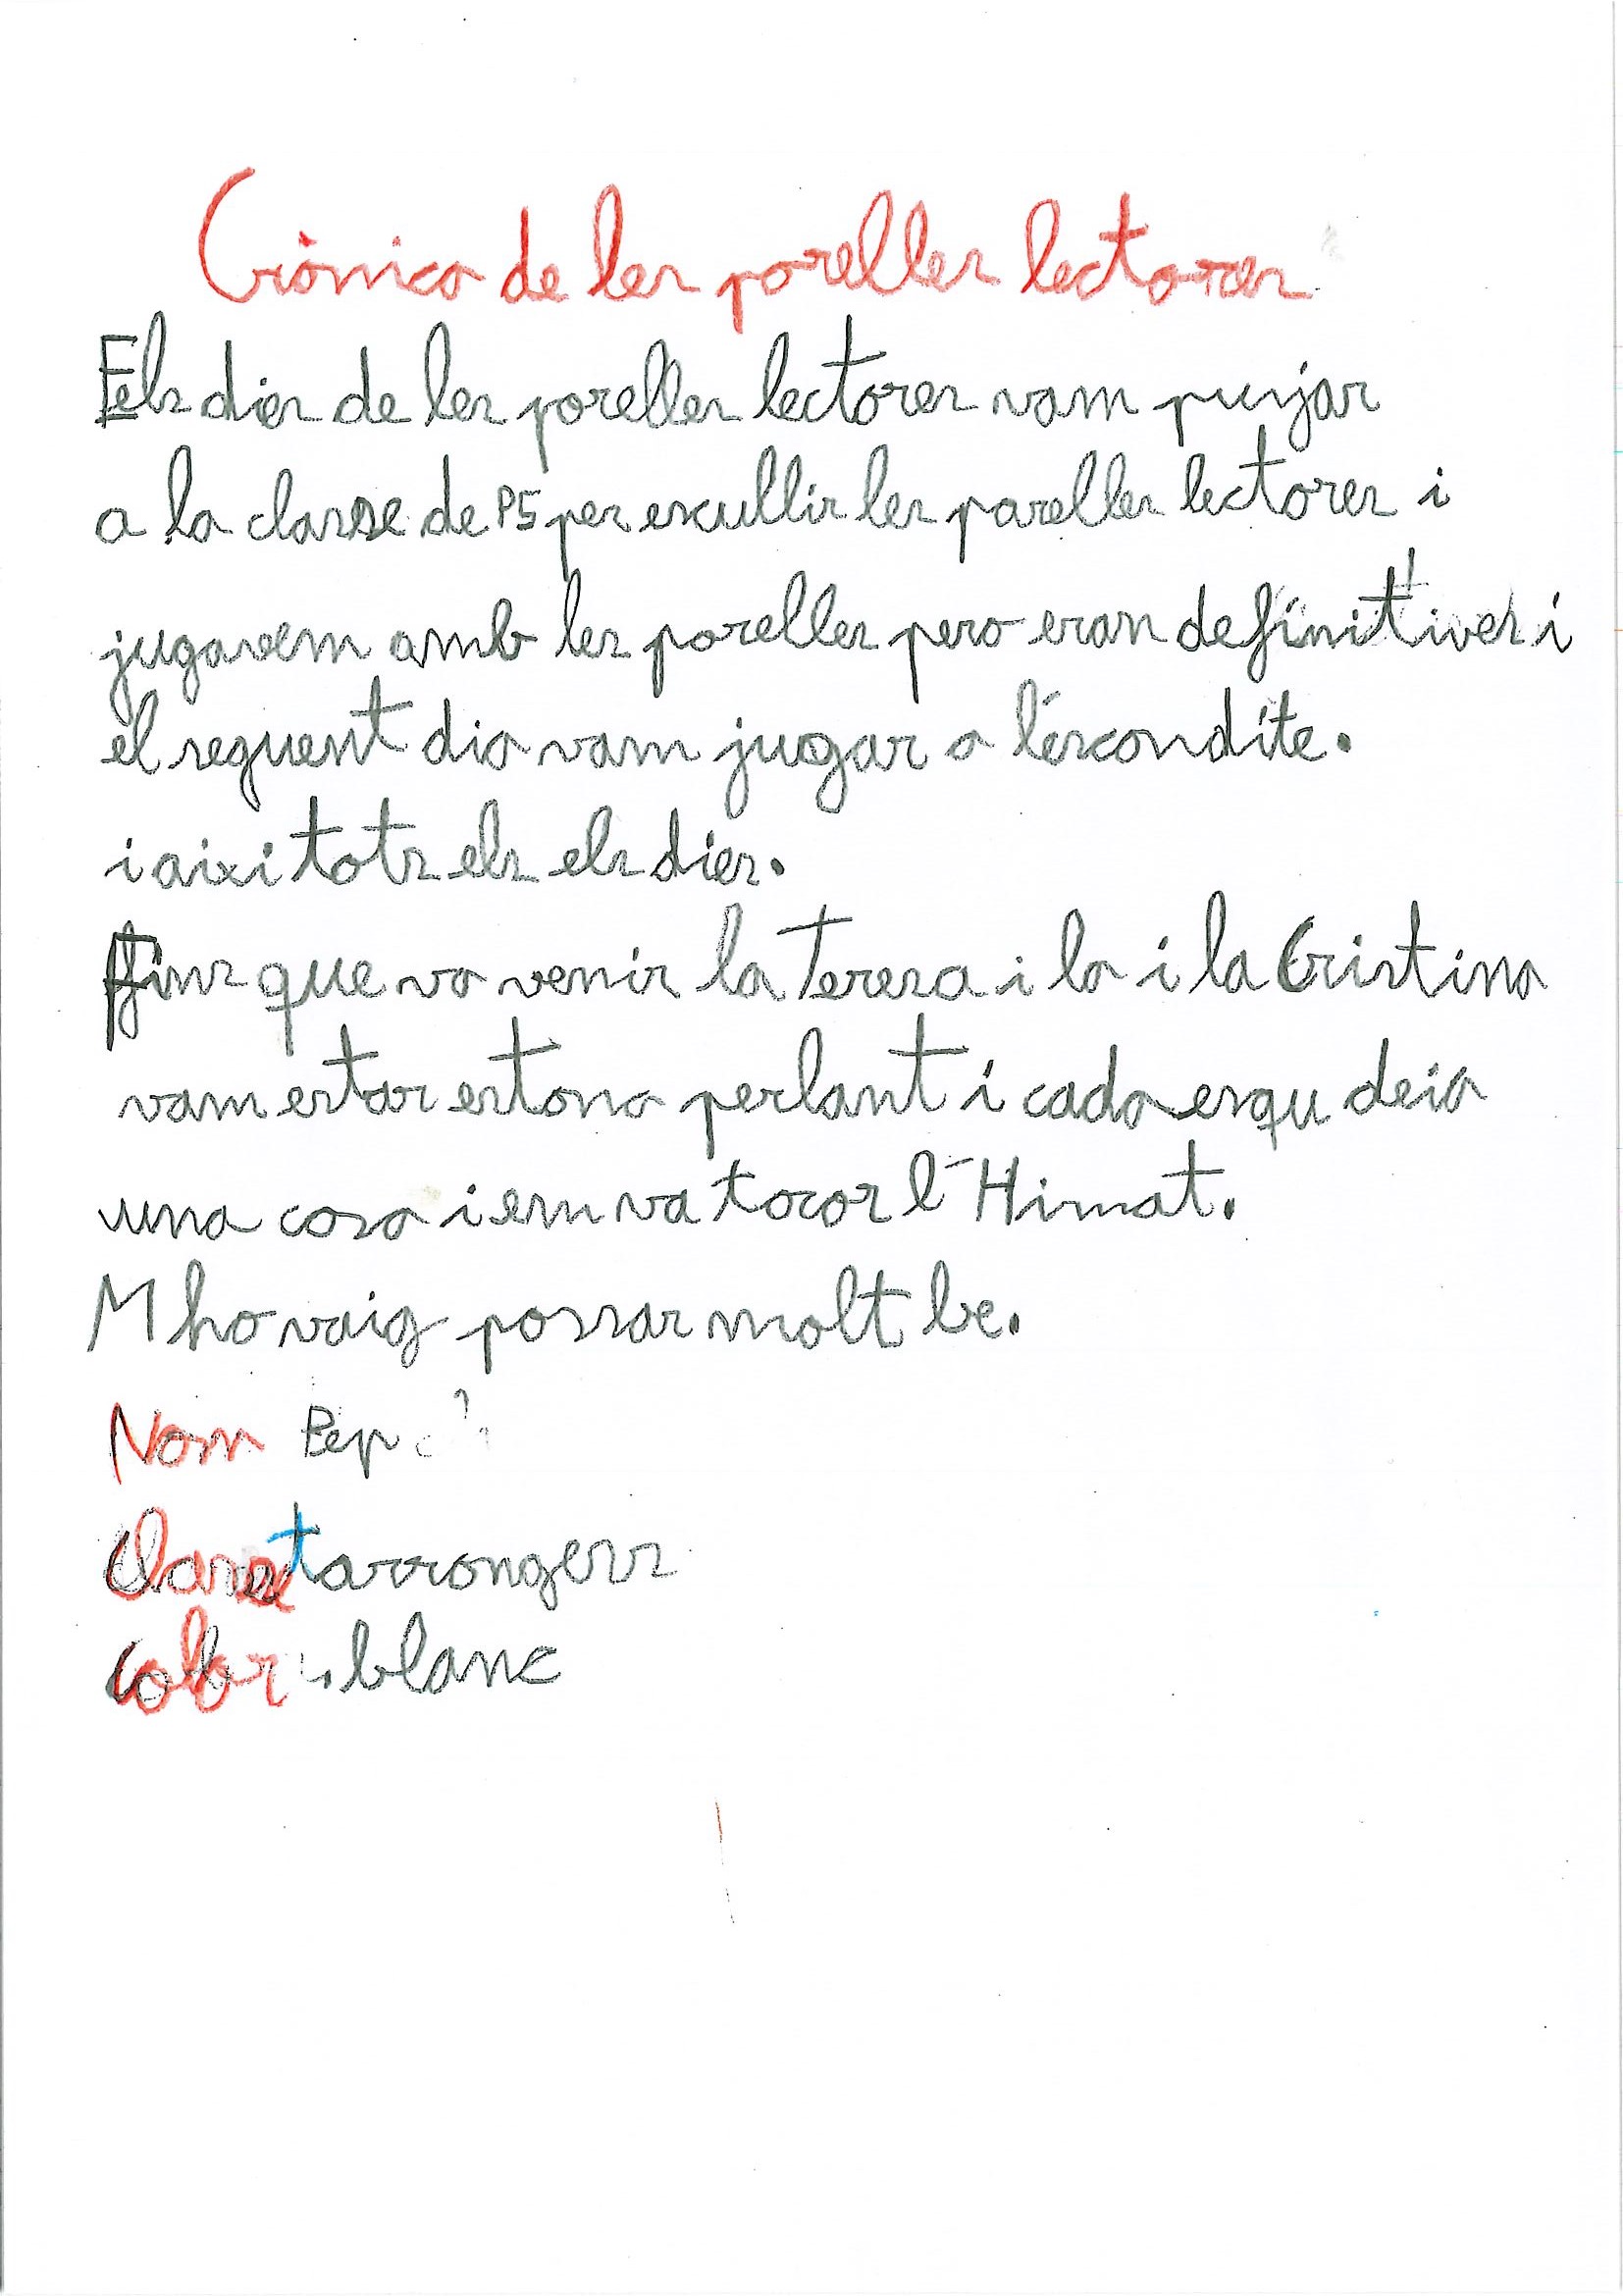 Crònica de les parelles lectores
Els dies de les parelles lectores vam punjar
a la classe de P5 per escullir les parelles lectores i
jugavem amb les parelles pero eran definitives i
el seguent dia vam jugar a l'escondite.
i aixi tots els els dies.
Fins que va venir la Teresa i la i la Cristina
vam estar estona perlant i cada esqu deia
una cosa i em va tocar l'Himat.
M ho vaig possar molt be.
Nom Pep
Classe tarrongers
Color: blanc